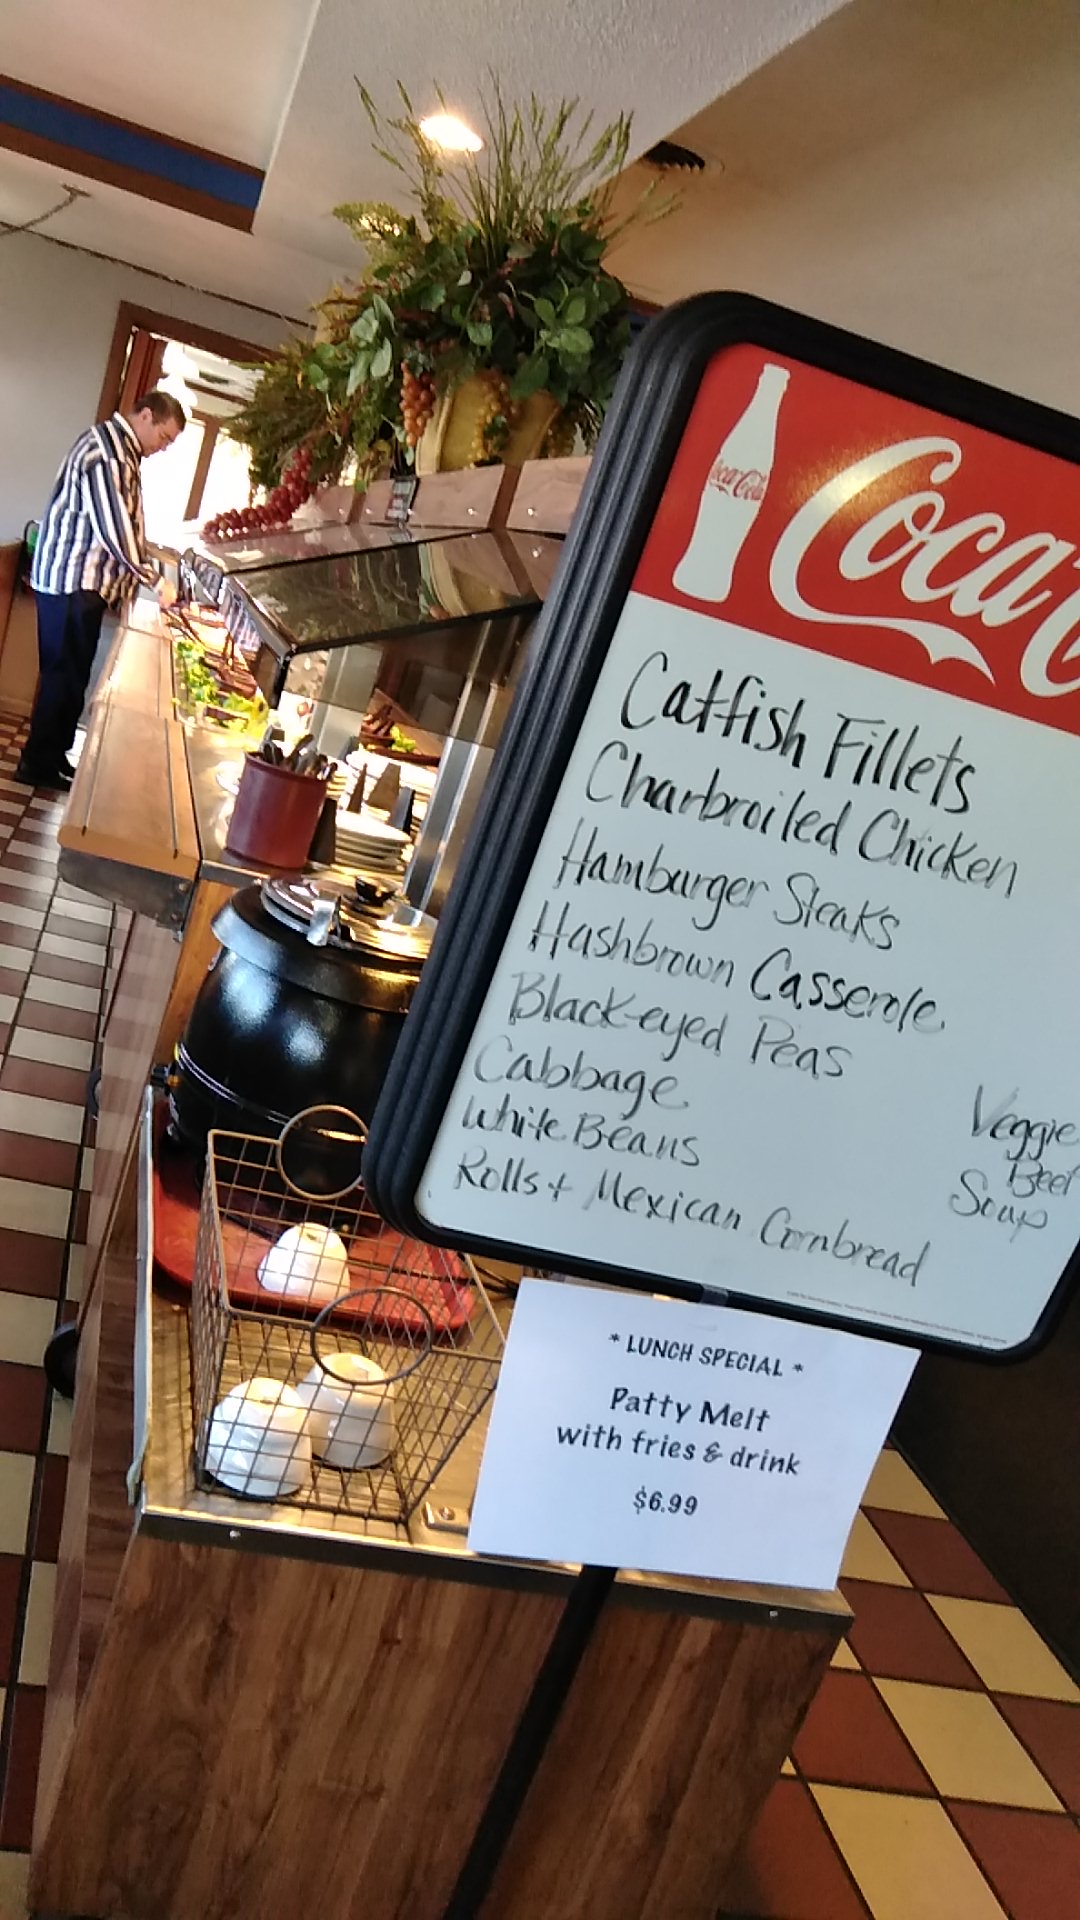 Coca-Cola
Coca C
Catfish Fillets
Charbroiled Chicken
Hamburger Steaks
Hashbrown Casserole
Black-eyed Peas
Cabbage
White Beans
Rolls + Mexican Cornbread
Veggie
Beef
Soup
* LUNCH SPECIAL *
Patty Melt
with fries & drink
$6.99